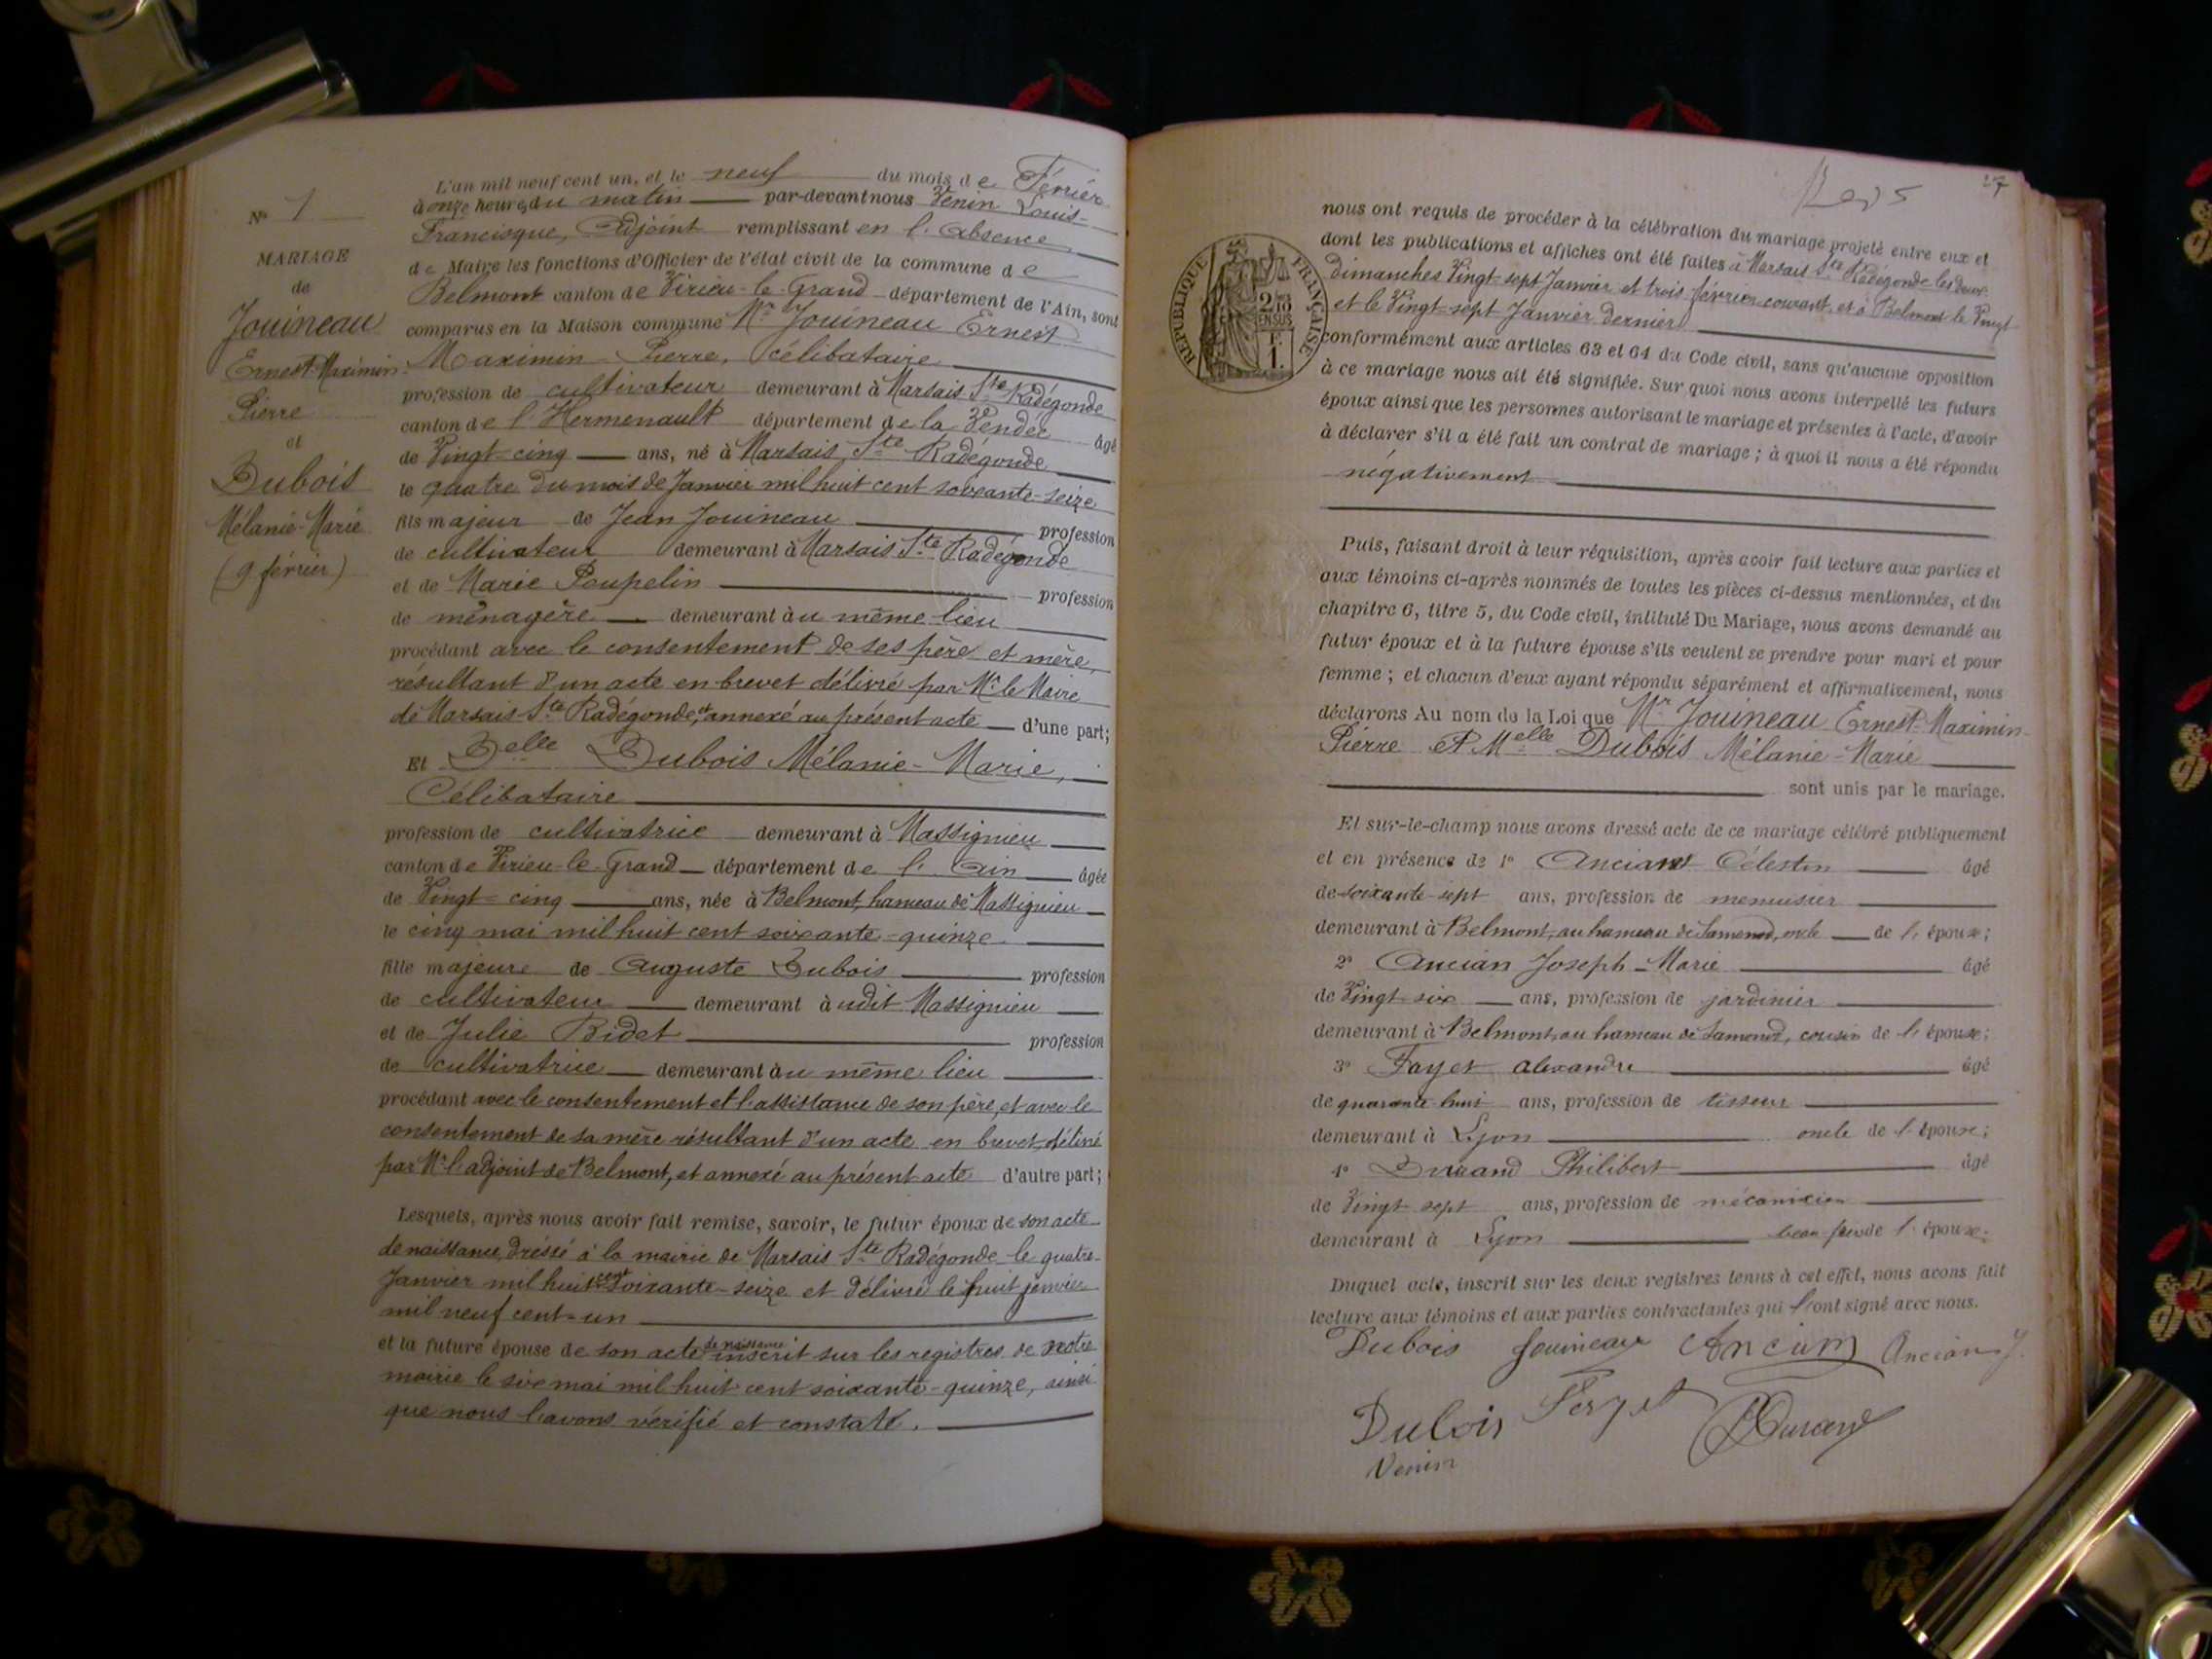 N° 1
MARIAGE
de
Jouineau
Ernest-Maximin-
Pierre
et
Dubois
Mélanie-Marie
(9 février)
L'an mil neuf cent un, et le neuf du mois de Février
à onze heures du matin par-devant nous Venin Louis-
Francisque, Adjoint remplissant en l'absence
de Maire les fonctions d'Officier de l'état civil de la commune de
Belmont canton de Virieu-le-Grand département de l'Ain, sont
comparus en la Maison commune Mr Jouineau Ernest
Maximin-Pierre, célibataire
profession de cultivateur demeurant à Marsais Ste Radégonde
canton de l'Hermenault département de la Vendée âgé
de Vingt-cinq ans, né à Marsais Ste Radégonde
le quatre du mois de Janvier mil huit cent soixante-seize
fils majeur de Jean Jouineau profession
de cultivateur demeurant à Marsais Ste Radégonde
et de Marie Poupelin profession
de ménagère demeurant au même lieu
procédant avec le consentement de ses père et mère,
résultant d'un acte en brevet délivré par Mr le Maire
de Marsais-Ste Radégonde, et annexé au présent acte d'une part;
Et Delle Dubois Mélanie-Marie,
Célibataire
profession de cultivatrice demeurant à Massignieu
canton de Virieu-le-Grand département de l'Ain âgée
de Vingt-cinq ans, née à Belmont, hameau de Massignieu
le cinq mai mil huit cent soixante-quinze
fille majeure de Auguste Dubois profession
de cultivateur demeurant audit Massignieu
et de Julie Bidet profession
de cultivatrice demeurant au même lieu
procédant avec le consentement et l'assistance de son père, et avec le
consentement de sa mère résultant d'un acte en brevet, délivré
par Mr l'adjoint de Belmont, et annexé au présent acte d'autre part;
Lesquels, après nous avoir fait remise, savoir, le futur époux de son acte
de naissance, dressé à la mairie de Marsais Ste Radégonde le quatre
Janvier mil huit cent soixante-seize et délivré le huit janvier
mil neuf cent-un
et la future épouse de son acte de naissance inscrit sur les registres de notre
mairie le six mai mil huit cent soixante-quinze, ainsi
que nous l'avons vérifié et constaté.
27
RÉPUBLIQUE FRANÇAISE
2/10 EN SUS
F. 1.
nous ont requis de procéder à la célébration du mariage projeté entre eux et
dont les publications et affiches ont été faites à Marsais Ste Radégonde les deux
dimanches Vingt-sept Janvier et trois février courant, et à Belmont le Vingt
et le Vingt-sept Janvier dernier
conformément aux articles 63 et 64 du Code civil, sans qu'aucune opposition
à ce mariage nous ait été signifiée. Sur quoi nous avons interpellé les futurs
époux ainsi que les personnes autorisant le mariage et présentes à l'acte, d'avoir
à déclarer s'il a été fait un contrat de mariage; à quoi il nous a été répondu
négativement
Puis, faisant droit à leur réquisition, après avoir fait lecture aux parties et
aux témoins ci-après nommés de toutes les pièces ci-dessus mentionnées, et du
chapitre 6, titre 5, du Code civil, intitulé Du Mariage, nous avons demandé au
futur époux et à la future épouse s'ils veulent se prendre pour mari et pour
femme; et chacun d'eux ayant répondu séparément et affirmativement, nous
déclarons Au nom de la Loi que Mr Jouineau Ernest-Maximin-
Pierre et Melle Dubois Mélanie-Marie
sont unis par le mariage.
Et sur-le-champ nous avons dressé acte de ce mariage célébré publiquement
et en présence de 1° Ancian Célestin âgé
de soixante-sept ans, profession de menuisier
demeurant à Belmont, au hameau de Samonod, oncle de l'épouse;
2° Ancian Joseph-Marie âgé
de Vingt-six ans, profession de jardinier
demeurant à Belmont, au hameau de Samonod, cousin de l'épouse;
3° Fayet Alexandre âgé
de quarante-huit ans, profession de tisseur
demeurant à Lyon oncle de l'épouse;
4° Durand Philibert âgé
de Vingt-sept ans, profession de mécanicien
demeurant à Lyon beau-frère de l'épouse;
Duquel acte, inscrit sur les deux registres tenus à cet effet, nous avons fait
lecture aux témoins et aux parties contractantes qui l'ont signé avec nous.
Dubois Jouineau Ancian Ancian J.
Dubois Durand
Venin